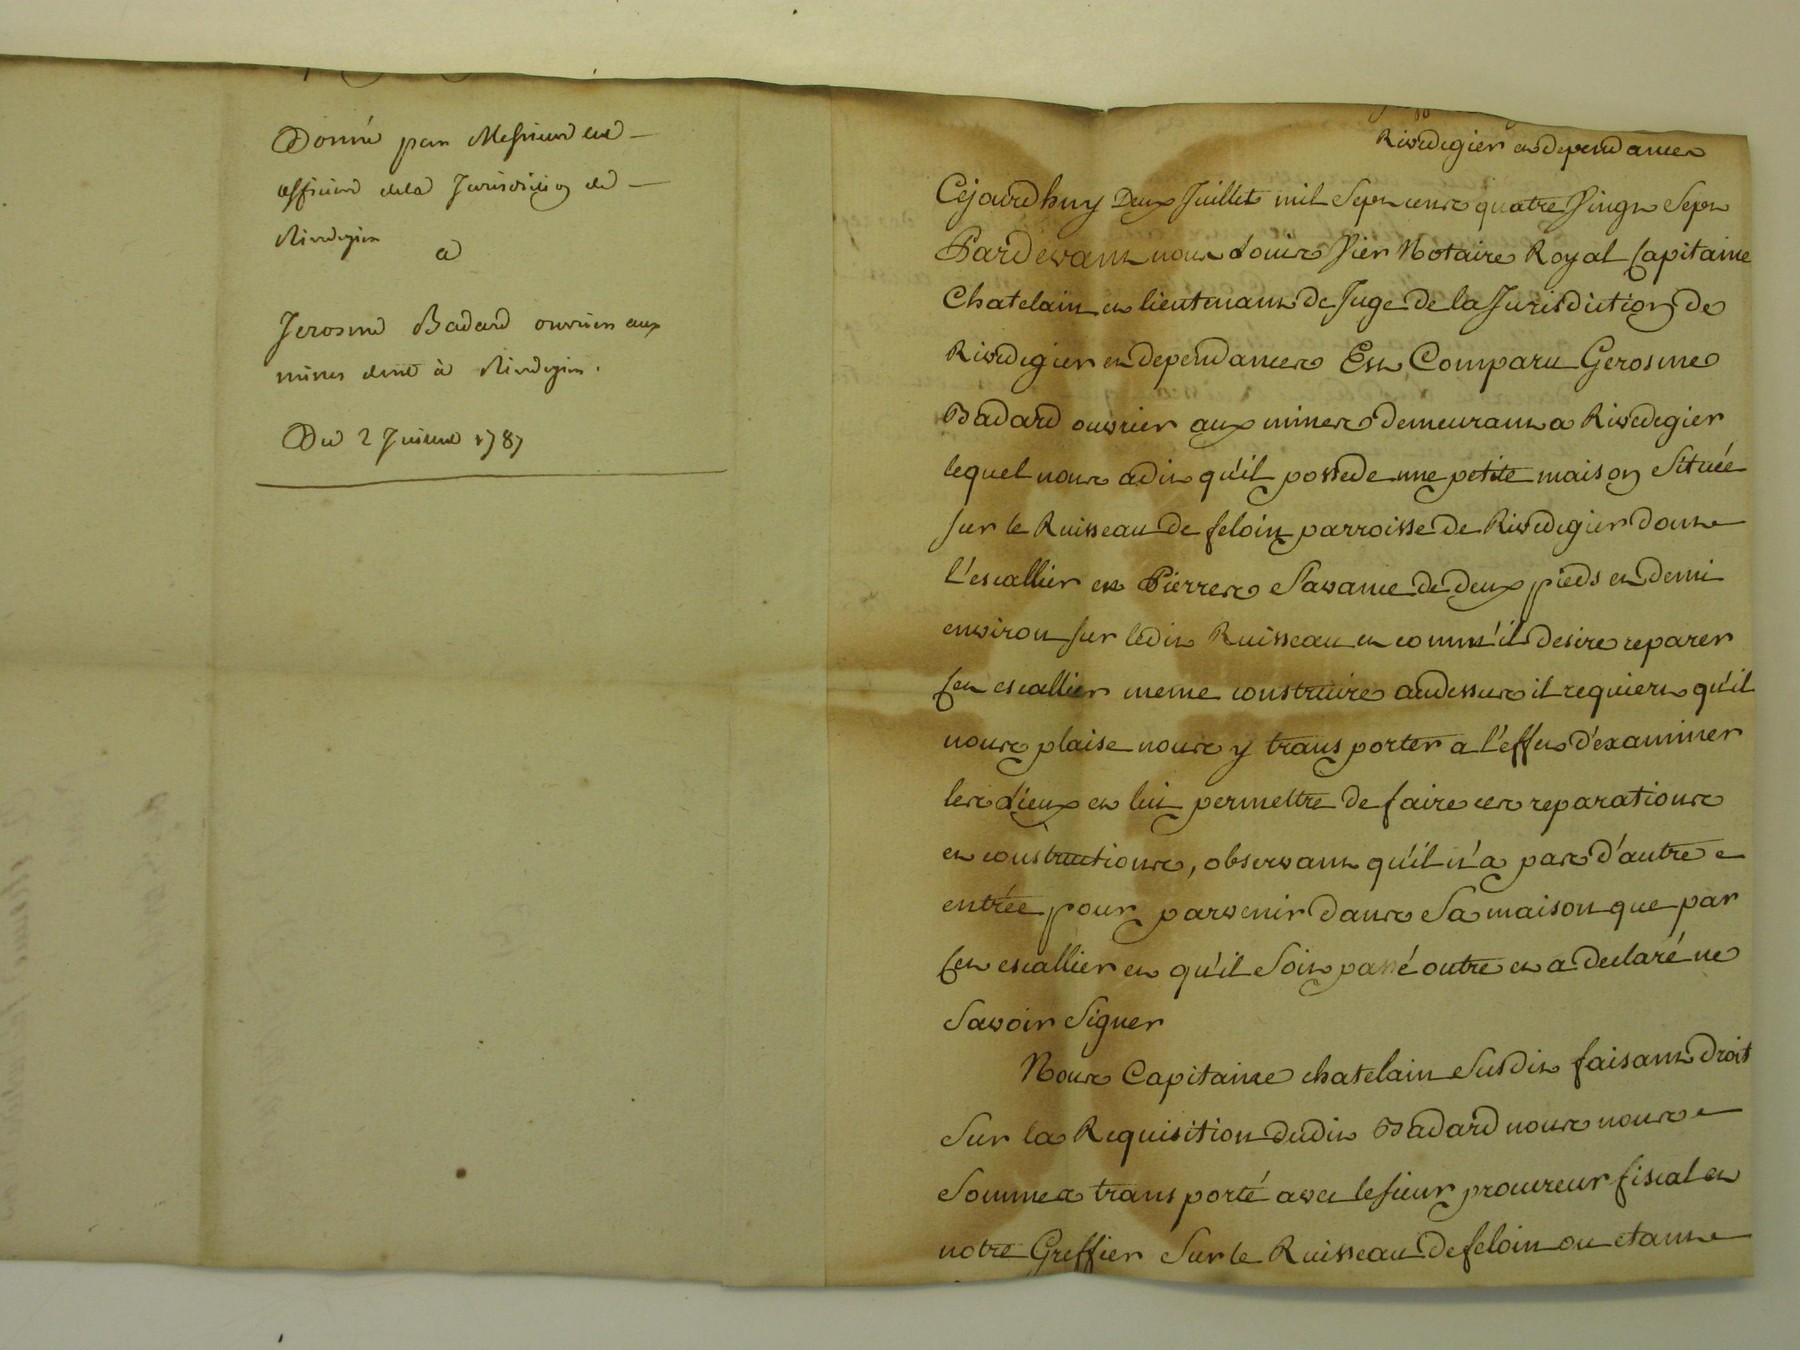 Donné par Messieurs les
officiers de la Jurisdiction de
Rivedegier
a
Jerosme Badard ouvrier aux
mines dem.t à Rivedegier.
Du 2 Juillet 1787
Rivedegier et dependances
Cejourdhuy Deux Juillet mil Sept cent quatre Vingt Sept
Pardevant nous Louis Vier Notaire Royal Capitaine
Chatelain et lieutenant de Juge de la Jurisdiction de
Rivedegier et dependances Est Comparu Gerosme
Badard ouvrier aux mines demeurant a Rivedegier
lequel nous a dit qu'il possede une petite maison Située
sur le Ruisseau de feloin parroisse de Rivedegier dont
l'escallier en Pierres S'avance de deux pieds et demi
environ sur ledit Ruisseau et comm'il desire reparer
Cet escallier meme construire audessus il requiert qu'il
nous plaise nous y transporter a l'effet d'examiner
les Lieux et lui permettre de faire ces reparations
et constructions, observant qu'il n'a pas d'autre
entrée pour parvenir dans Sa maison que par
Cet escallier et qu'il Soit passé outre et a declaré ne
Savoir Signer
Nous Capitaine chatelain Susdit faisant droit
Sur la Requisition dudit Badard nous nous
Sommes transporté avec le sieur procureur fiscal et
notre Greffier Sur le Ruisseau de feloin ou etant